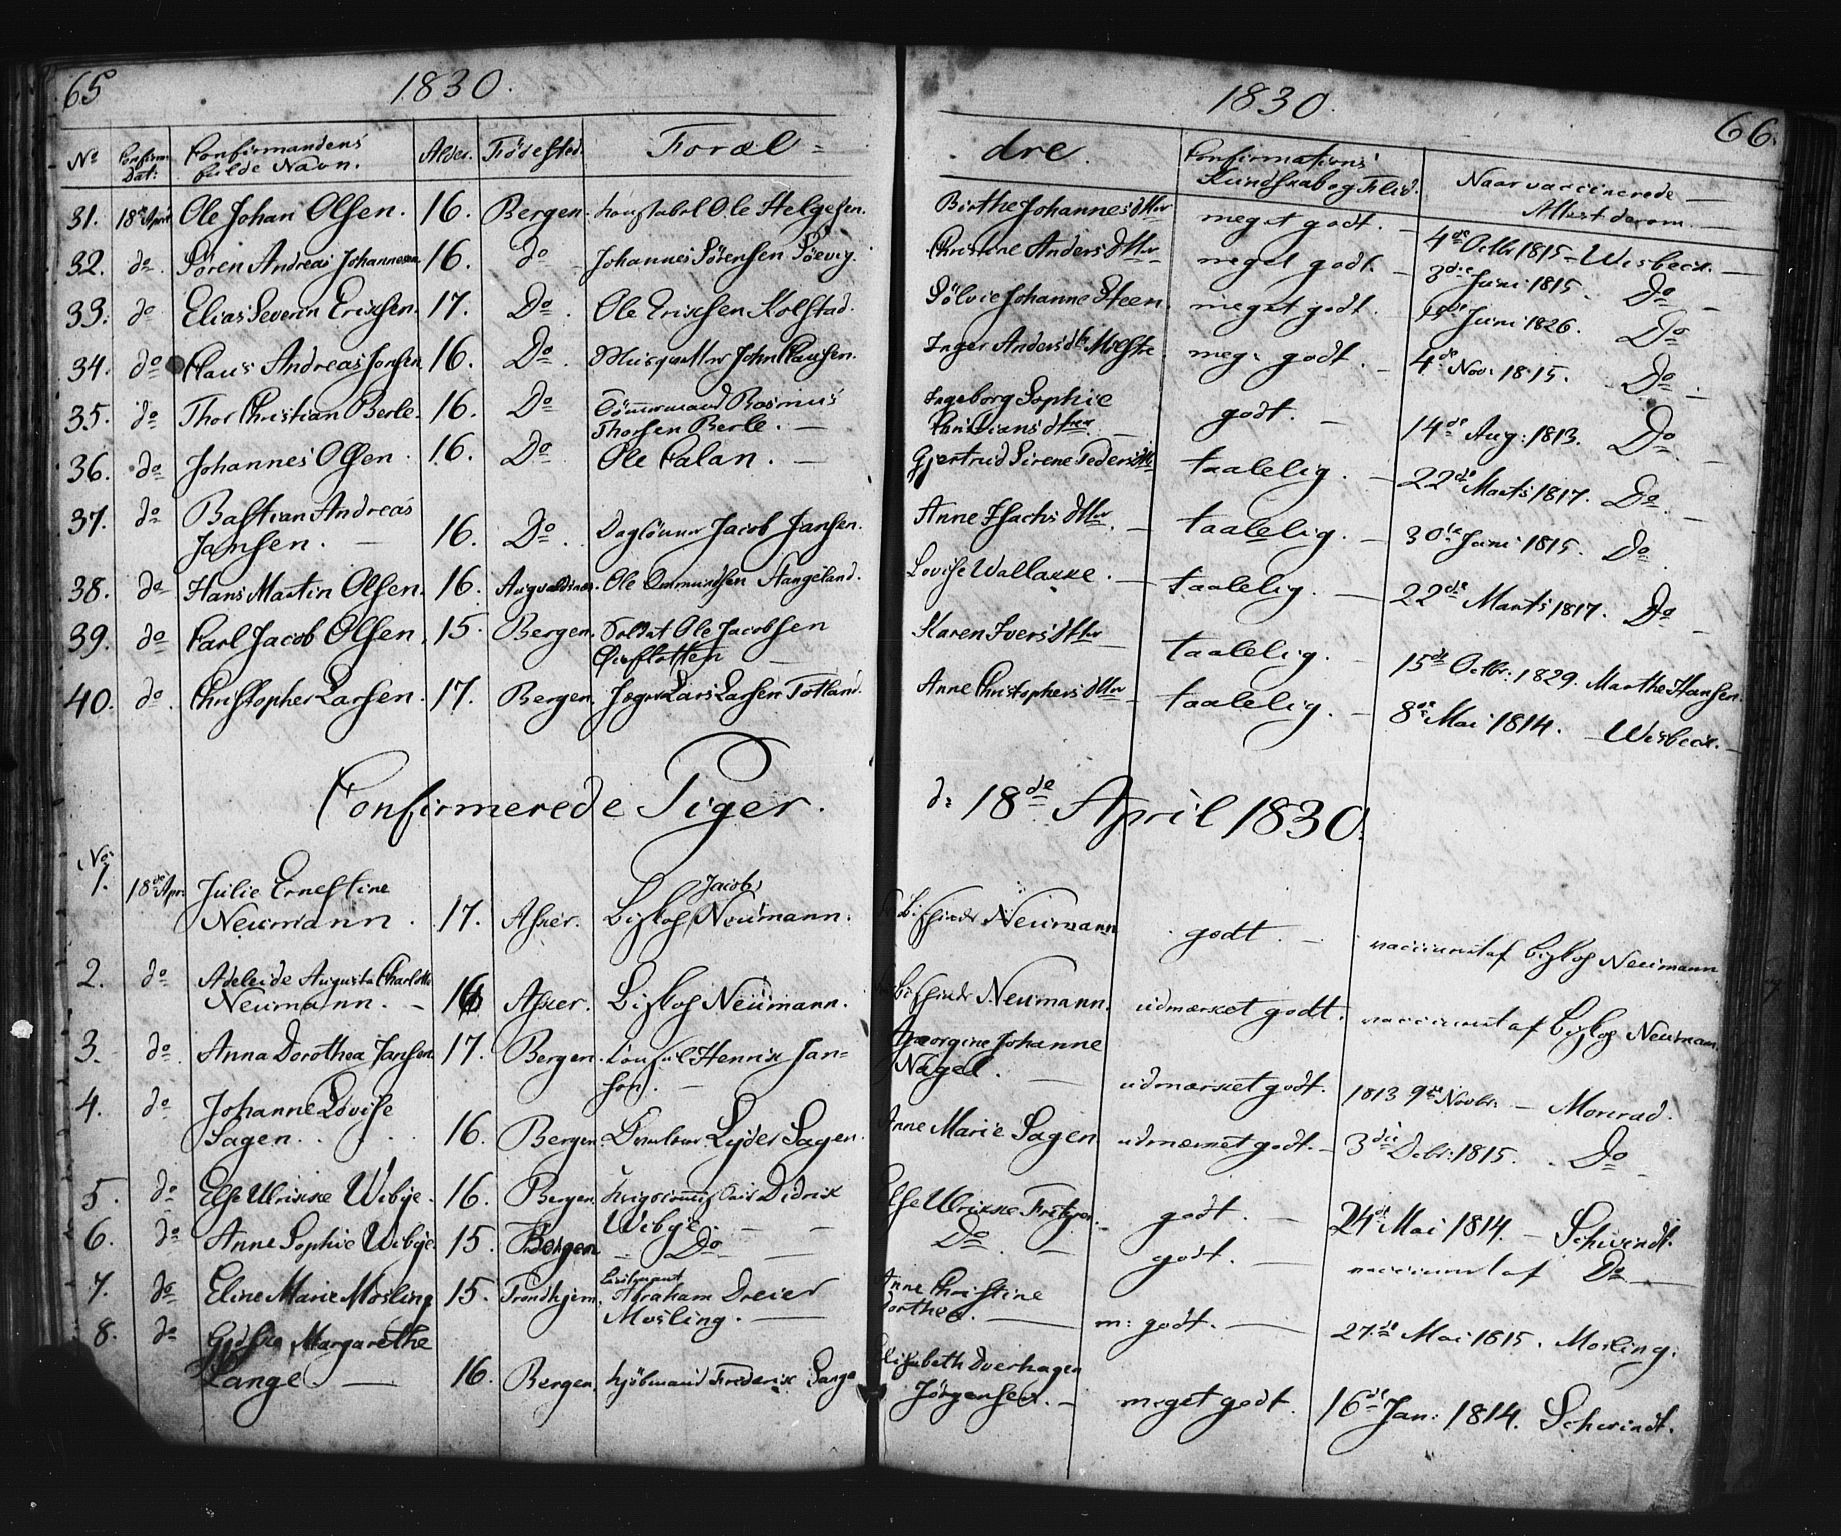 65
1830.
No Confirm: Dat: Confirmandens fulde Navn. Alder. Födested. Foræl=
31. 18de April Ole Johan Olsen. 16. Bergen. Konstabel Ole Helgesen.
32. do Sören Andreas Johannesen 16. do Johannes Sörensen Söevig.
33. do Elias Severin Erichsen. 17. Do. Ole Erichsen Kolstad.
34. do Hans Andreas Jonsen 16. Do Musqueteer John Clausen.
35. do Thor Christian Berle. 16. Do Tömmermand Rasmus
Thorsen Berle. —
36. do Johannes Olsen. 16. Do Ole Calan. —
37. do Bastian Andreas
Jansen. — 16. Do. Daglönner Jacob Jansen.
38. do Hans Martin Olsen. 16. Ole Ommundsen Stangeland.
39. do Carl Jacob Olsen. 15. Bergen. Soldat Ole Jacobsen
40. do Christopher Larsen. 17. Bergen. Lars Larsen Totland.
Confirmerede Piger.
No
1. 18de Apr: Julie Ernestine Jacob
Neumann. 17. Asker. Biskop Neumann.
2. do Adeleide Augusta Charlotte
Neumann. — 16 Asker. Biskop Neumann.
3. do Anna Dorothea Jansen 17. Bergen. Consul Henrik Jan=
son. —
4. do Johanne Lovise
Sagen. 16. Bergen. Lyder Sagen.
5. do Else Ulrikke Wibye. 16. Bergen. Didrik
Wibye. —
6. do Anne Sophie Wibye. 15. Bergen — Do —
7. do Eline Marie Mosling 15. Trondhjem. Lieutnant
Abraham Dreier
Mosling. —
8. do Margarethe
Lange. — 16. Bergen. Kjöbmand Frederik Lange
1830.
66.
dre. Confirmations Kundskab og Flid. Naar vaccinerede — Attest derom —
Birthe Johannesdtter meget godt. — 4de Octbr 1815 — Wisbech. —
Christine Andersdtter meget godt. — 3die Juni 1815. Do —
Sölvie Johanne Steen. meget godt. Juni 1826. Do
Inger Andersdtr meg: godt. — 4de Nov: 1815. Do.
Ingeborg Sophie
Christiansdtter. — godt. — 14de Aug: 1813. Do —
Gjertrud Sirene Pedersdtr taalelig. — 22de Marts 1817. Do —
Anne Isachsdtter. — taalelig. — 30te Juni 1815. Do.
Lovise Wallacke. — taalelig. — 22de Marts 1817. Do —
Karen Iversdtter — taalelig. — 15de Octbr: 1829. Marthe Hansen.
Anne Christophersdtter — taalelig. — 8de Mai 1814. — Wisbech. —
d: 18de April 1830.
Neumann godt. — vaccineret af Biskop Neumann
Neumann. udmærket godt. vaccineret af Biskop Neumann.
Georgine Johanne
Nagel. — udmærket godt. 1813 9de Novbr: — Monrad.
Anne Marie Sagen. udmærket godt. — 3die Debr: 1815. Do —
Else Ulrikke godt. — 24de Mai 1814. — Schwindt.
Do — godt. — vaccineret af Do —
Anne Christine
Dorthea. — m: godt. — 27de Mai 1815. Mosling.
Elisabeth Overhagen
Jörgensen. — meget godt. 16de Jan: 1814. Schwindt.